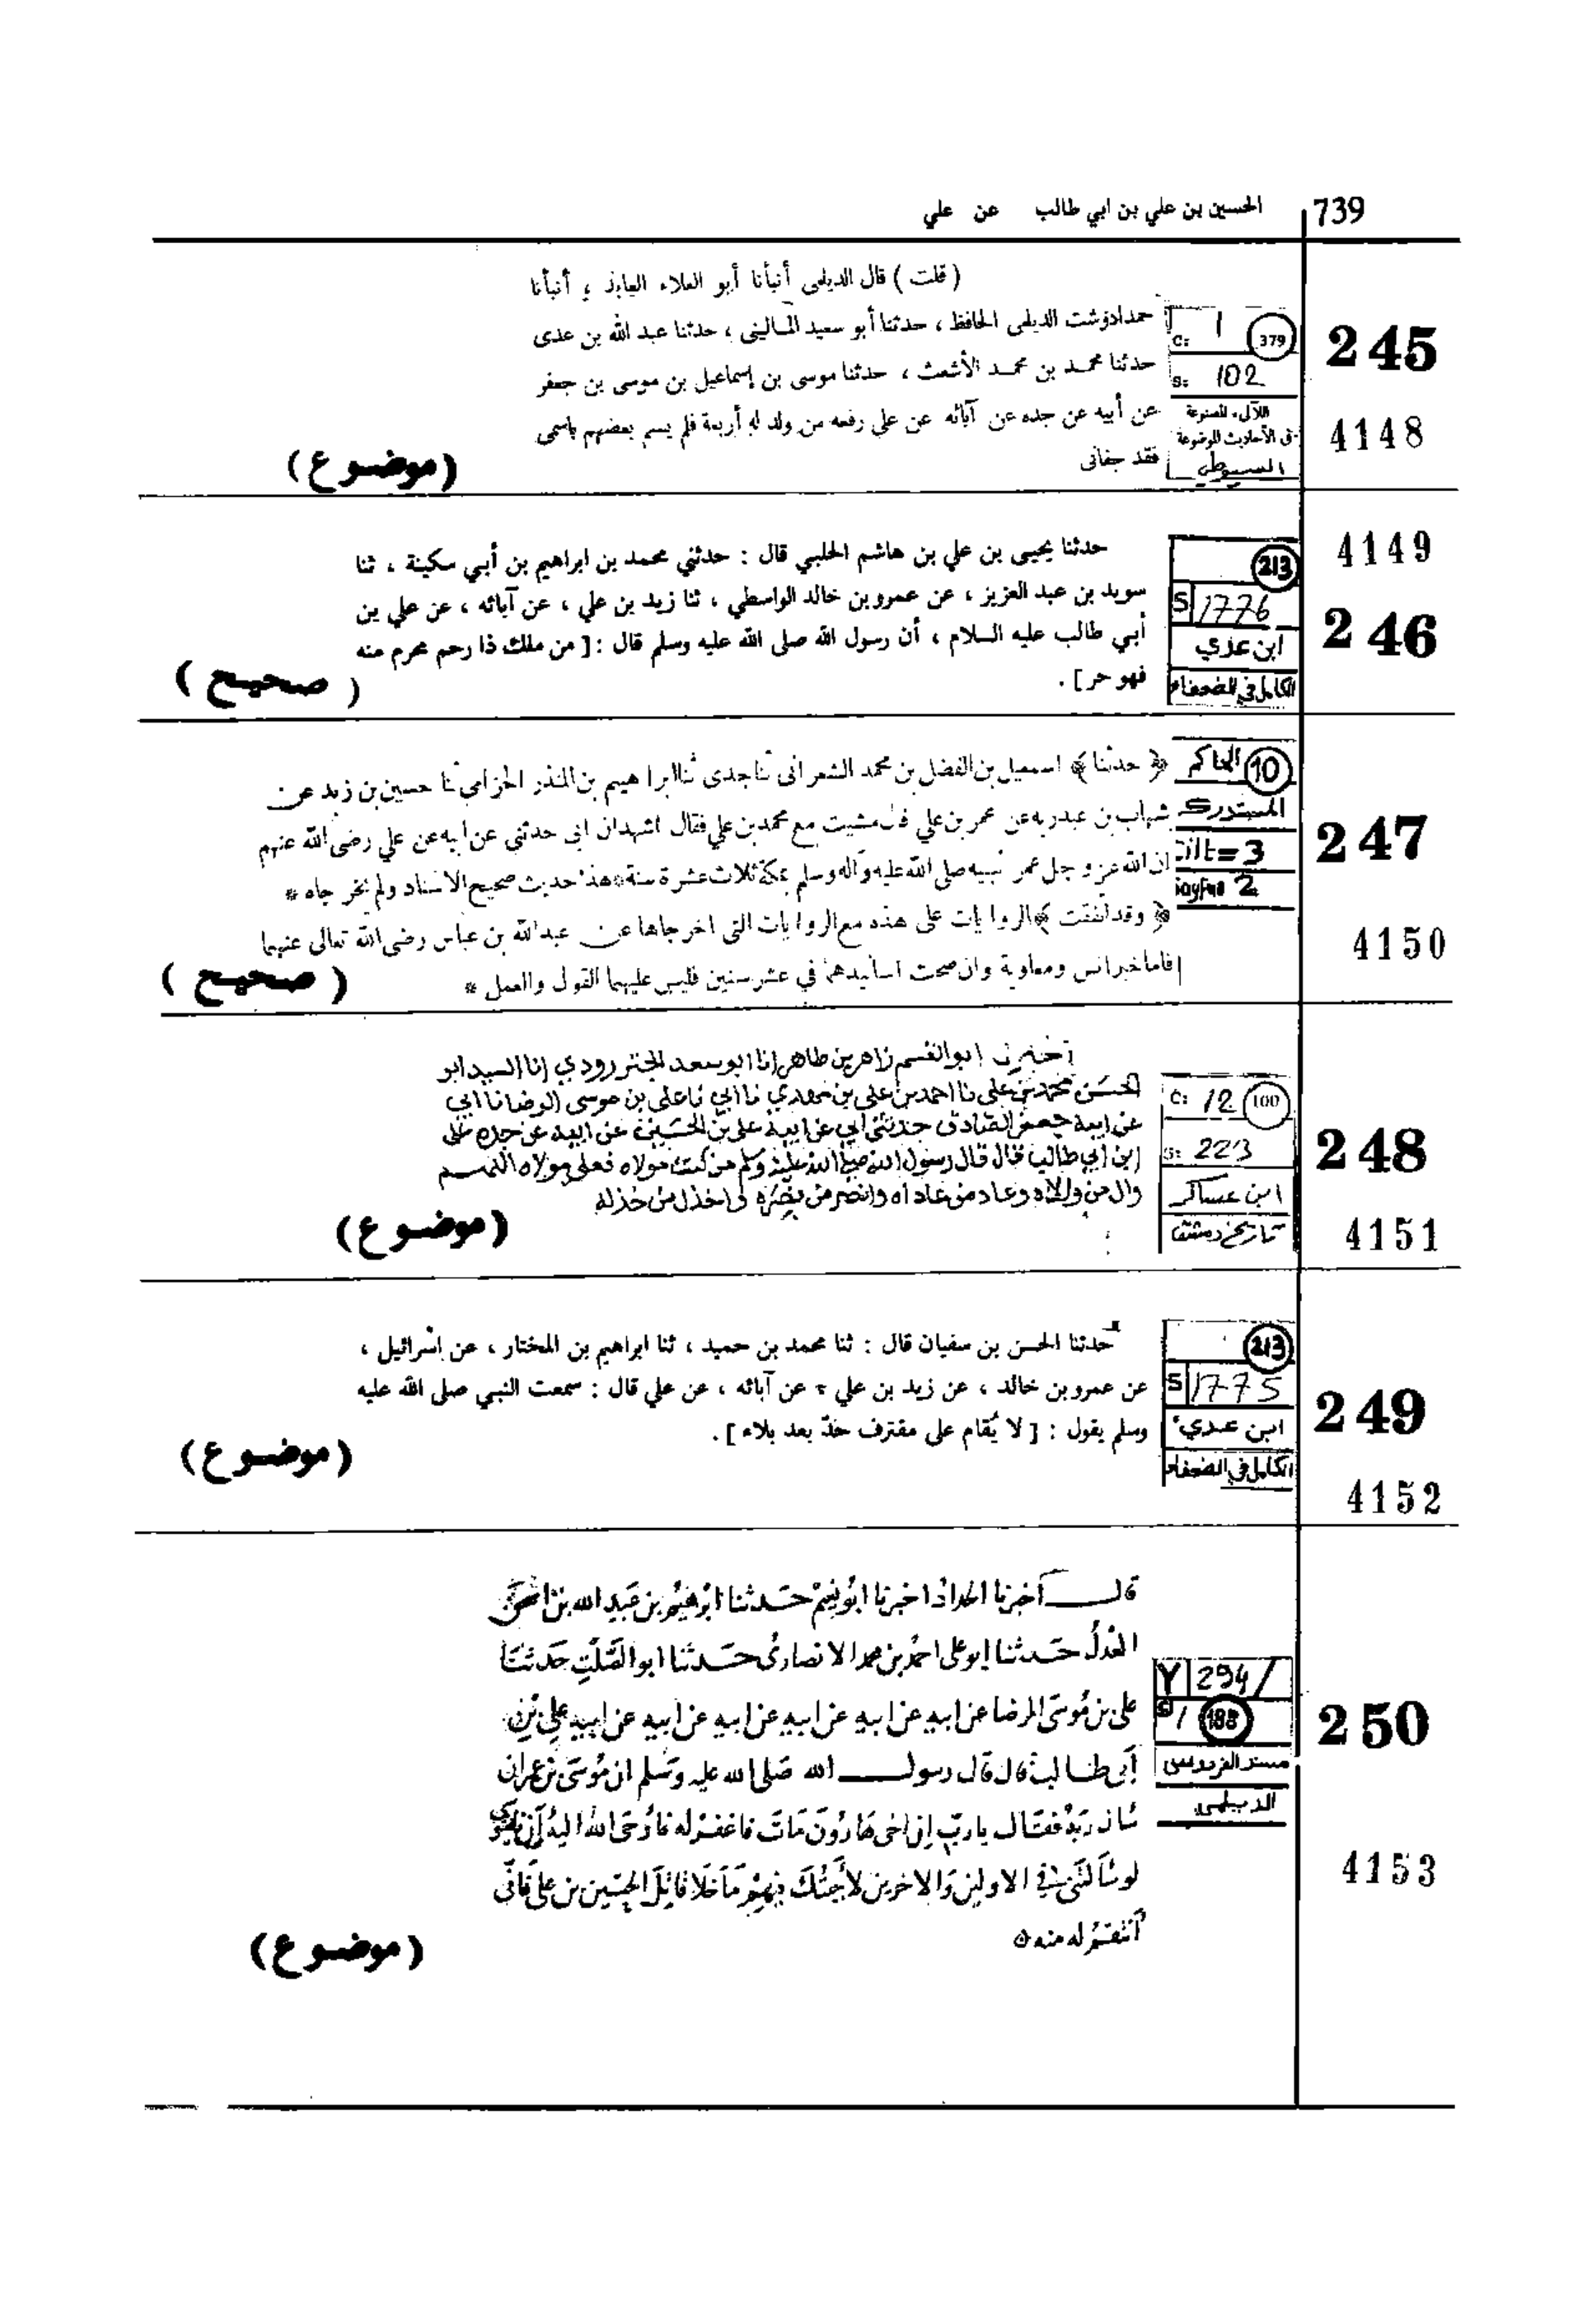 739 الحسين بن علي بن ابي طالب عن علي
( قلت ) قال الديلمى أنبأنا أبو العلاء العابد ، أنبأنا
حمدادوشت الديلمى الحافظ ، حدثنا أبو سعيد المالينى ، حدثنا عبد الله بن عدى
حدثنا محمد بن محمد الأشعث ، حدثنا موسى بن إسماعيل بن موسى بن جعفر
عن أبيه عن جده عن آبائه عن على رفعه من ولد له أربعة فلم يسم بعضهم باسمى
فقد جفانى
(موضوع)
C: 1 379
S: 102
اللآلىء المصنوعة
فى الأحاديث الموضوعة
السيوطى
245
4148
4149
حدثنا يحيى بن علي بن هاشم الحلبي قال : حدثني محمد بن ابراهيم بن أبي سكينة ، ثنا
سويد بن عبد العزيز ، عن عمرو بن خالد الواسطي ، ثنا زيد بن علي ، عن آبائه ، عن علي بن
أبي طالب عليه السلام ، أن رسول الله صلى الله عليه وسلم قال : [ من ملك ذا رحم محرم منه
فهو حر ] .
( صحيح )
213
S 1776
ابن عدي
الكامل في الضعفاء
246
﴿ حدثنا ﴾ اسمعيل بن الفضل بن محمد الشعرانى ثنا جدى ثنا ابراهيم بن المنذر الحزامي ثنا حسين بن زيد عن
شهاب بن عبدربه عن عمر بن علي قال مشيت مع محمد بن علي فقال اشهدان ابى حدثني عن ابيه عن علي رضى الله عنهم
ان الله عز وجل عمر نبيه صلى الله عليه وآله وسلم بمكة ثلاث عشرة سنة * هذا حديث صحيح الاسناد ولم يخرجاه *
﴿ وقد اتفقت ﴾ الروايات على هذه مع الروايات التى اخرجاها عن عبد الله بن عباس رضى الله تعالى عنهما
فاما خبر انس ومعاوية وان صحت اسانيدهما في عشر سنين فليس عليهما القول والعمل *
( صحيح )
10 الحاكم
المستدرك
Cilt=3
Sayfa 2
247
4150
ابو القسم زاهر بن طاهر انا ابو سعد الجنزرودي انا السيد ابو
الحسن محمد بن على نا احمد بن على بن مهدي نا ابي نا على بن موسى الرضا نا ابي
عن ابيه جعفر الصادق حدثني ابي عن ابيه على بن الحسين عن ابيه عن جده على
ابن ابي طالب قال قال رسول الله صلى الله عليه وسلم من كنت مولاه فعلي مولاه اللهم
وال من والاه وعاد من عاداه وانصر من نصره واخذل من خذله
(موضوع)
C: 12 100
S: 223
ابن عساكر
تاريخ دمشق
248
4151
حدثنا الحسن بن سفيان قال : ثنا محمد بن حميد ، ثنا ابراهيم بن المختار ، عن إسرائيل ،
عن عمرو بن خالد ، عن زيد بن علي ، عن آبائه ، عن علي قال : سمعت النبي صلى الله عليه
وسلم يقول : [ لا يُقام على مقترف حدّ بعد بلاء ] .
(موضوع)
213
S 1775
ابن عدي
الكامل في الضعفاء
249
4152
قال اخبرنا الحداد اخبرنا ابو نعيم حدثنا ابرهيم بن عبد الله بن اسحق
العدل حدثنا ابو على احمد بن محمد الانصارى حدثنا ابو الصلت حدثنا
على بن موسى الرضا عن ابيه عن ابيه عن ابيه عن ابيه عن ابيه عن ابيه على بن
أبى طالب قال قال رسول الله صلى الله عليه وسلم ان موسى بن عمران
سأل ربه فقال يا رب إن اخى هارون مات فاغفر له فاوحى الله اليه أن يا موسى
لو سألتنى في الاولين والاخرين لاجبتك فيهم ما خلا قاتل الحسين بن على فانى
انتقم له منه
(موضوع)
Y 294/
S/ 188
مسند الفردوس
الديلمى
250
4153